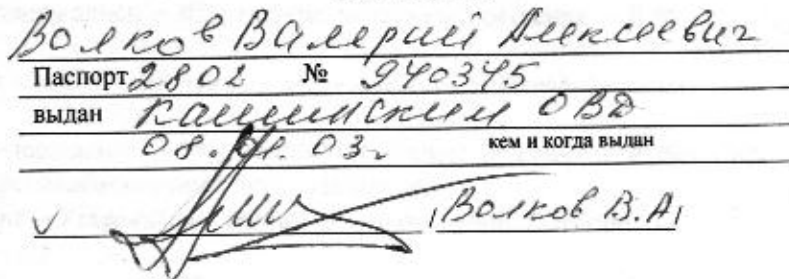 Волков Валерий Алексеевич
Паспорт 2802 № 940345
выдан Кашинским ОВД
08.01.03г кем и когда выдан
Волков В.А